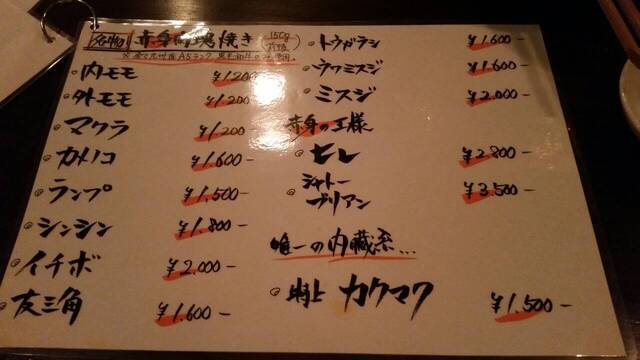 名物 赤身肉塊焼き 150g
※全て九州産A5ランク黒毛和牛のみ使用。
内モモ ¥1200
外モモ ¥1200
マクラ ¥1200
カメノコ ¥1.600-
ランプ ¥1.500-
シンシン ¥1.800-
イチボ ¥2.000-
友三角 ¥1.600-
トウガラシ ¥1.600-
ウワミスジ ¥1.600-
ミスジ ¥2.000-
赤身の王様
ヒレ ¥2800-
シャトー
ブリアン ¥3.500-
唯一の内蔵系...
特上 カクマク ¥1.500-